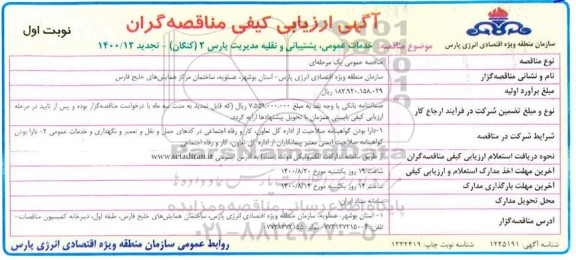 آگهی ارزیابی کیفی مناقصه‌گران
نوبت اول
موضوع مناقصه: خدمات عمومی، پشتیبانی و نقلیه مدیریت پارس ۲ (کنگان) - تجدید ۱۴۰۰/۱۲
سازمان منطقه ویژه اقتصادی انرژی پارس
نوع مناقصه
مناقصه عمومی یک مرحله‌ای
نام و نشانی مناقصه‌گزار
سازمان منطقه ویژه اقتصادی انرژی پارس- استان بوشهر، عسلویه، ساختمان مرکز همایش‌های خلیج فارس
مبلغ برآورد اولیه
۱۸۲،۹۲۰،۱۵۸،۰۲۹ ریال
نوع و مبلغ تضمین شرکت در فرایند ارجاع کار
ضمانتنامه بانکی یا وجه نقد به مبلغ ۷،۵۵۹،۰۰۰،۰۰۰ ریال (که قابل تمدید به مدت سه ماه با درخواست مناقصه‌گزار بوده و پس از تایید در مرحله
ارزیابی کیفی بایستی همزمان با تحویل پیشنهادها ارائه گردد.
شرایط شرکت در مناقصه
۱-دارا بودن گواهینامه صلاحیت از اداره کل تعاون، کار و رفاه اجتماعی در کدهای حمل و نقل و تعمیر و نگهداری و خدمات عمومی ۲- دارا بودن
گواهینامه صلاحیت ایمنی معتبر پیمانکاران از اداره کل تعاون، کار و رفاه اجتماعی
نحوه دریافت استعلام ارزیابی کیفی مناقصه‌گران
از طریق سامانه تدارکات الکترونیکی دولت (ستاد) به آدرس اینترنتی www.setadiran.ir
آخرین مهلت اخذ مدارک استعلام و ارزیابی کیفی
ساعت ۱۹ روز یکشنبه مورخ ۱۴۰۰/۸/۳۰
آخرین مهلت بارگذاری مدارک
ساعت ۱۴ روز یکشنبه مورخ ۱۴۰۰/۹/۱۴
محل تحویل مدارک
سامانه ستاد ایران
آدرس مناقصه‌گزار
۱- استان بوشهر، عسلویه، سازمان منطقه ویژه اقتصادی انرژی پارس، ساختمان همایش‌های خلیج فارس، طبقه اول، دبیرخانه کمیسیون مناقصات-
شناسه آگهی: ۱۲۲۵۱۹۱
شناسه نوبت چاپ: ۱۳۳۲۴۱۹
روابط عمومی سازمان منطقه ویژه اقتصادی انرژی پارس
ParsNamadData
۰۲۱-۸۸۳۴۹۶۷۰-۵